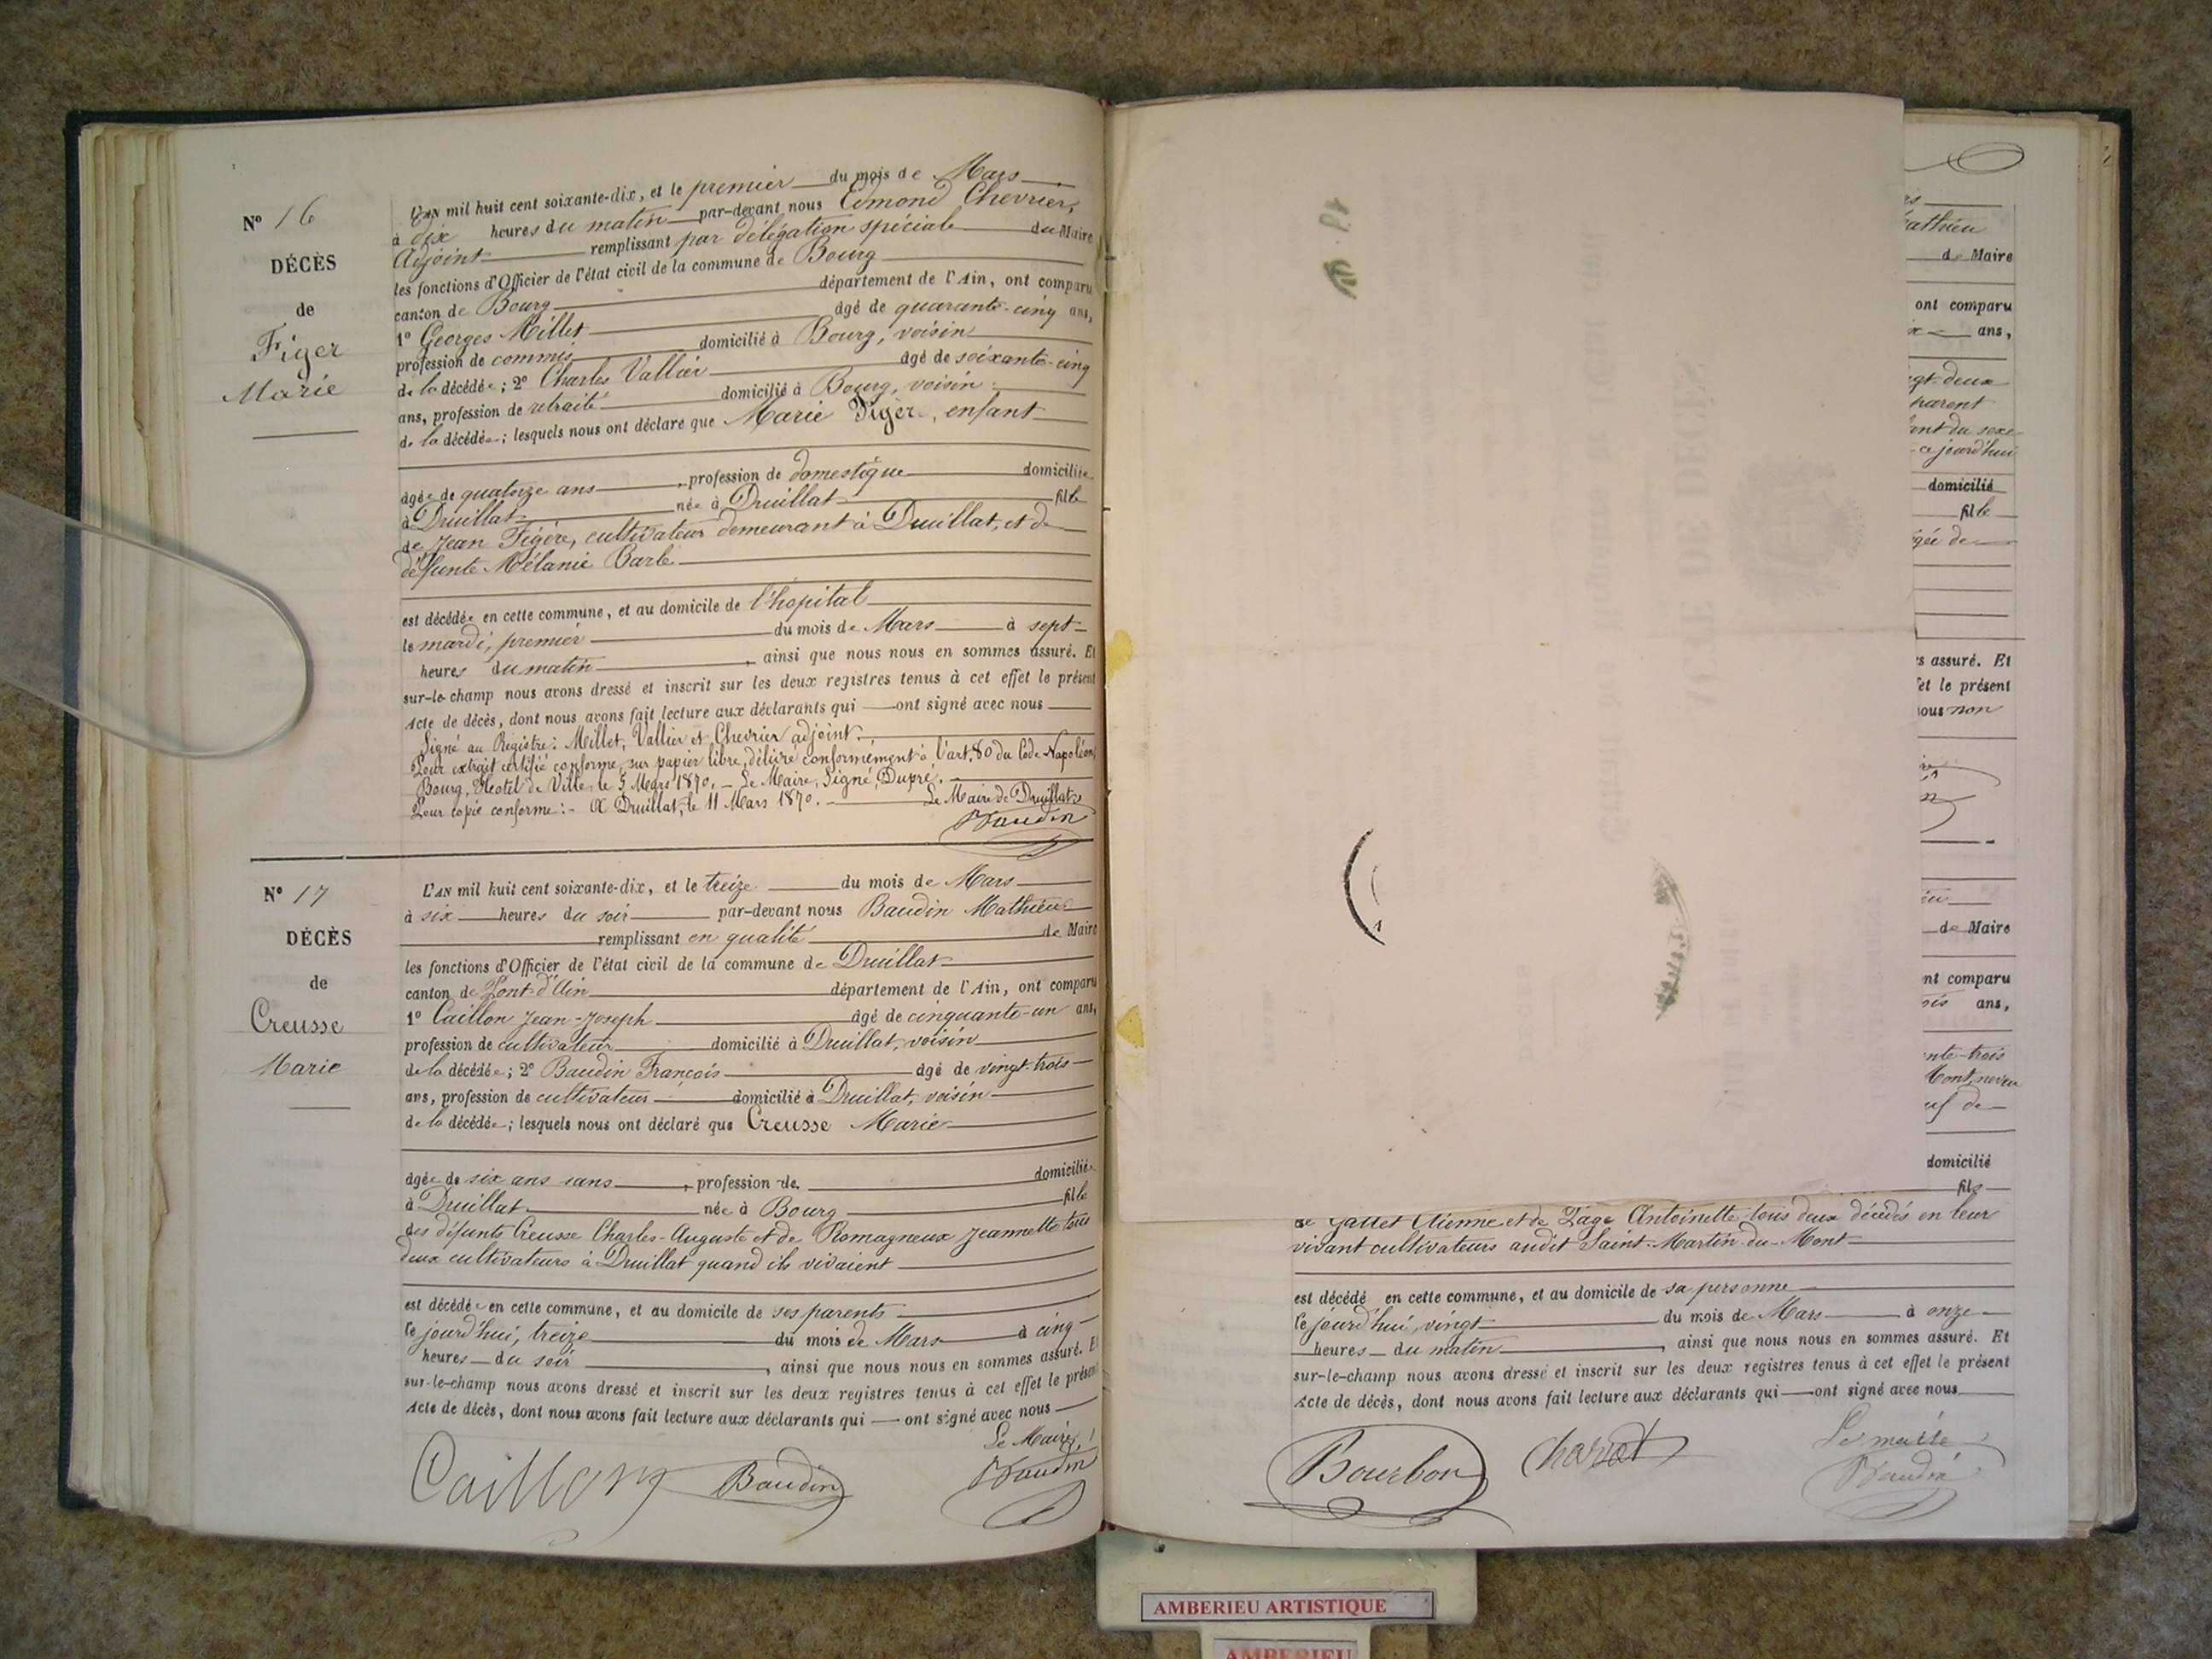 N° 16
DÉCÈS
de
Figer
Marie
L'AN mil huit cent soixante-dix, et le premier du mois de Mars
à dix heures du matin par-devant nous Edmond Chevrier,
Adjoint remplissant par délégation spéciale du Maire
les fonctions d'Officier de l'état civil de la commune de Bourg
canton de Bourg département de l'Ain, ont comparu
1° Georges Millet âgé de quarante-cinq ans,
profession de commis domicilié à Bourg, voisin
de la décédée; 2° Charles Vallier âgé de soixante-cinq
ans, profession de retraité domicilié à Bourg, voisin
de la décédée; lesquels nous ont déclaré que Marie Figer, enfant
âgée de quatorze ans, profession de domestique domiciliée
à Druillat née à Druillat fille
de Jean Figère, cultivateur demeurant à Druillat, et de
défunte Mélanie Barbe
est décédée en cette commune, et au domicile de l'hopital
le mardi, premier du mois de Mars à sept
heures du matin, ainsi que nous nous en sommes assuré. Et
sur-le-champ nous avons dressé et inscrit sur les deux registres tenus à cet effet le présent
Acte de décès, dont nous avons fait lecture aux déclarants qui ont signé avec nous
Signé au Registre: Millet, Vallier et Chevrier adjoint.
Pour extrait certifié conforme, sur papier libre, délivré conformément à l'art. 80 du Code Napoléon,
Bourg, Hotel de Ville, le 5 Mars 1870. - Le Maire, Signé, Dupré.
Pour copie conforme: - A Druillat, le 11 Mars 1870. Le Maire de Druillat
Baudin
N° 17
DÉCÈS
de
Creusse
Marie
L'AN mil huit cent soixante-dix, et le treize du mois de Mars
à six heures du soir par-devant nous Baudin Mathieu
remplissant en qualité de Maire
les fonctions d'Officier de l'état civil de la commune de Druillat
canton de Pont-d'Ain département de l'Ain, ont comparu
1° Caillon Jean-Joseph âgé de cinquante-un ans,
profession de cultivateur domicilié à Druillat, voisin
de la décédée; 2° Baudin François âgé de vingt-trois
ans, profession de cultivateur domicilié à Druillat, voisin
de la décédée; lesquels nous ont déclaré que Creusse Marie
âgée de six ans sans, profession de domiciliée
à Druillat née à Bourg fille
des défunts Creusse Charles-Auguste et de Romagneux Jeannette tous
deux cultivateurs à Druillat quand ils vivaient
est décédée en cette commune, et au domicile de ses parents
le jourd'hui, treize du mois de Mars à cinq
heures du soir, ainsi que nous nous en sommes assuré. Et
sur-le-champ nous avons dressé et inscrit sur les deux registres tenus à cet effet le présent
Acte de décès, dont nous avons fait lecture aux déclarants qui ont signé avec nous
Le Maire,
Caillon Baudin Baudin
athieu
de Maire
ont comparu
ans,
gt-deux
parent
ant du sexe
ce jourd'hui
domicilié
fille
gée de
s assuré. Et
et le présent
nous non
de Maire
nt comparu
ois ans,
nte-trois
Mont, neveu
uf de
domicilié
fils
de Gallet Etienne et de Page Antoinette tous deux décédés en leur
vivant cultivateurs audit Saint-Martin-du-Mont
est décédé en cette commune, et au domicile de sa personne
le jourd'hui, vingt du mois de Mars à onze
heures du matin, ainsi que nous nous en sommes assuré. Et
sur-le-champ nous avons dressé et inscrit sur les deux registres tenus à cet effet le présent
Acte de décès, dont nous avons fait lecture aux déclarants qui ont signé avec nous
Le maire
Bourbon Charvet Baudin
AMBERIEU ARTISTIQUE
AMBERIEU